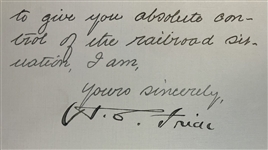 to give you absolute con-
trol of the railroad sit-
uation, I am,
Yours sincerely,